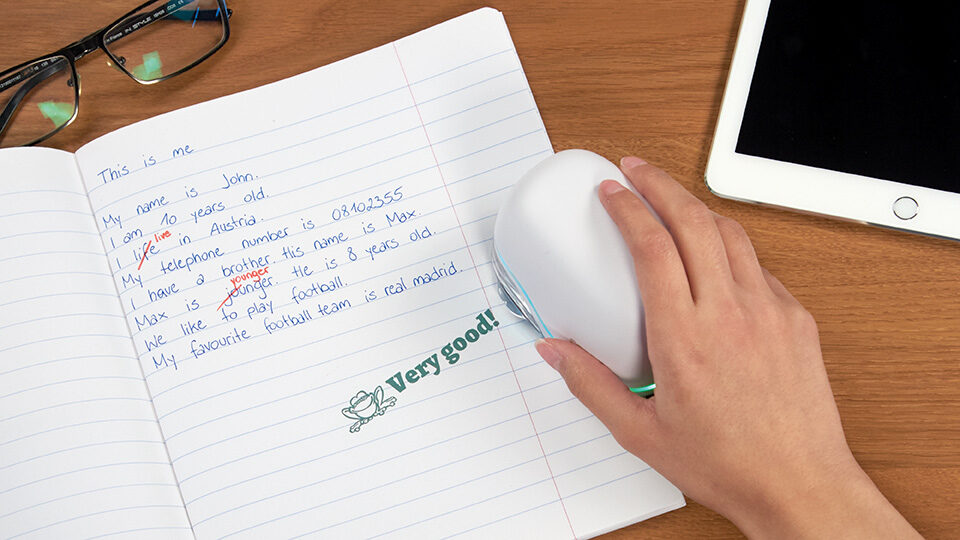 This is me
My name is John.
I am 10 years old.
I life live in Austria.
My telephone number is 08102355
I have a brother. His name is Max.
Max is jounger younger. He is 8 years old.
We like to play football.
My favourite football team is real madrid.
Very good!